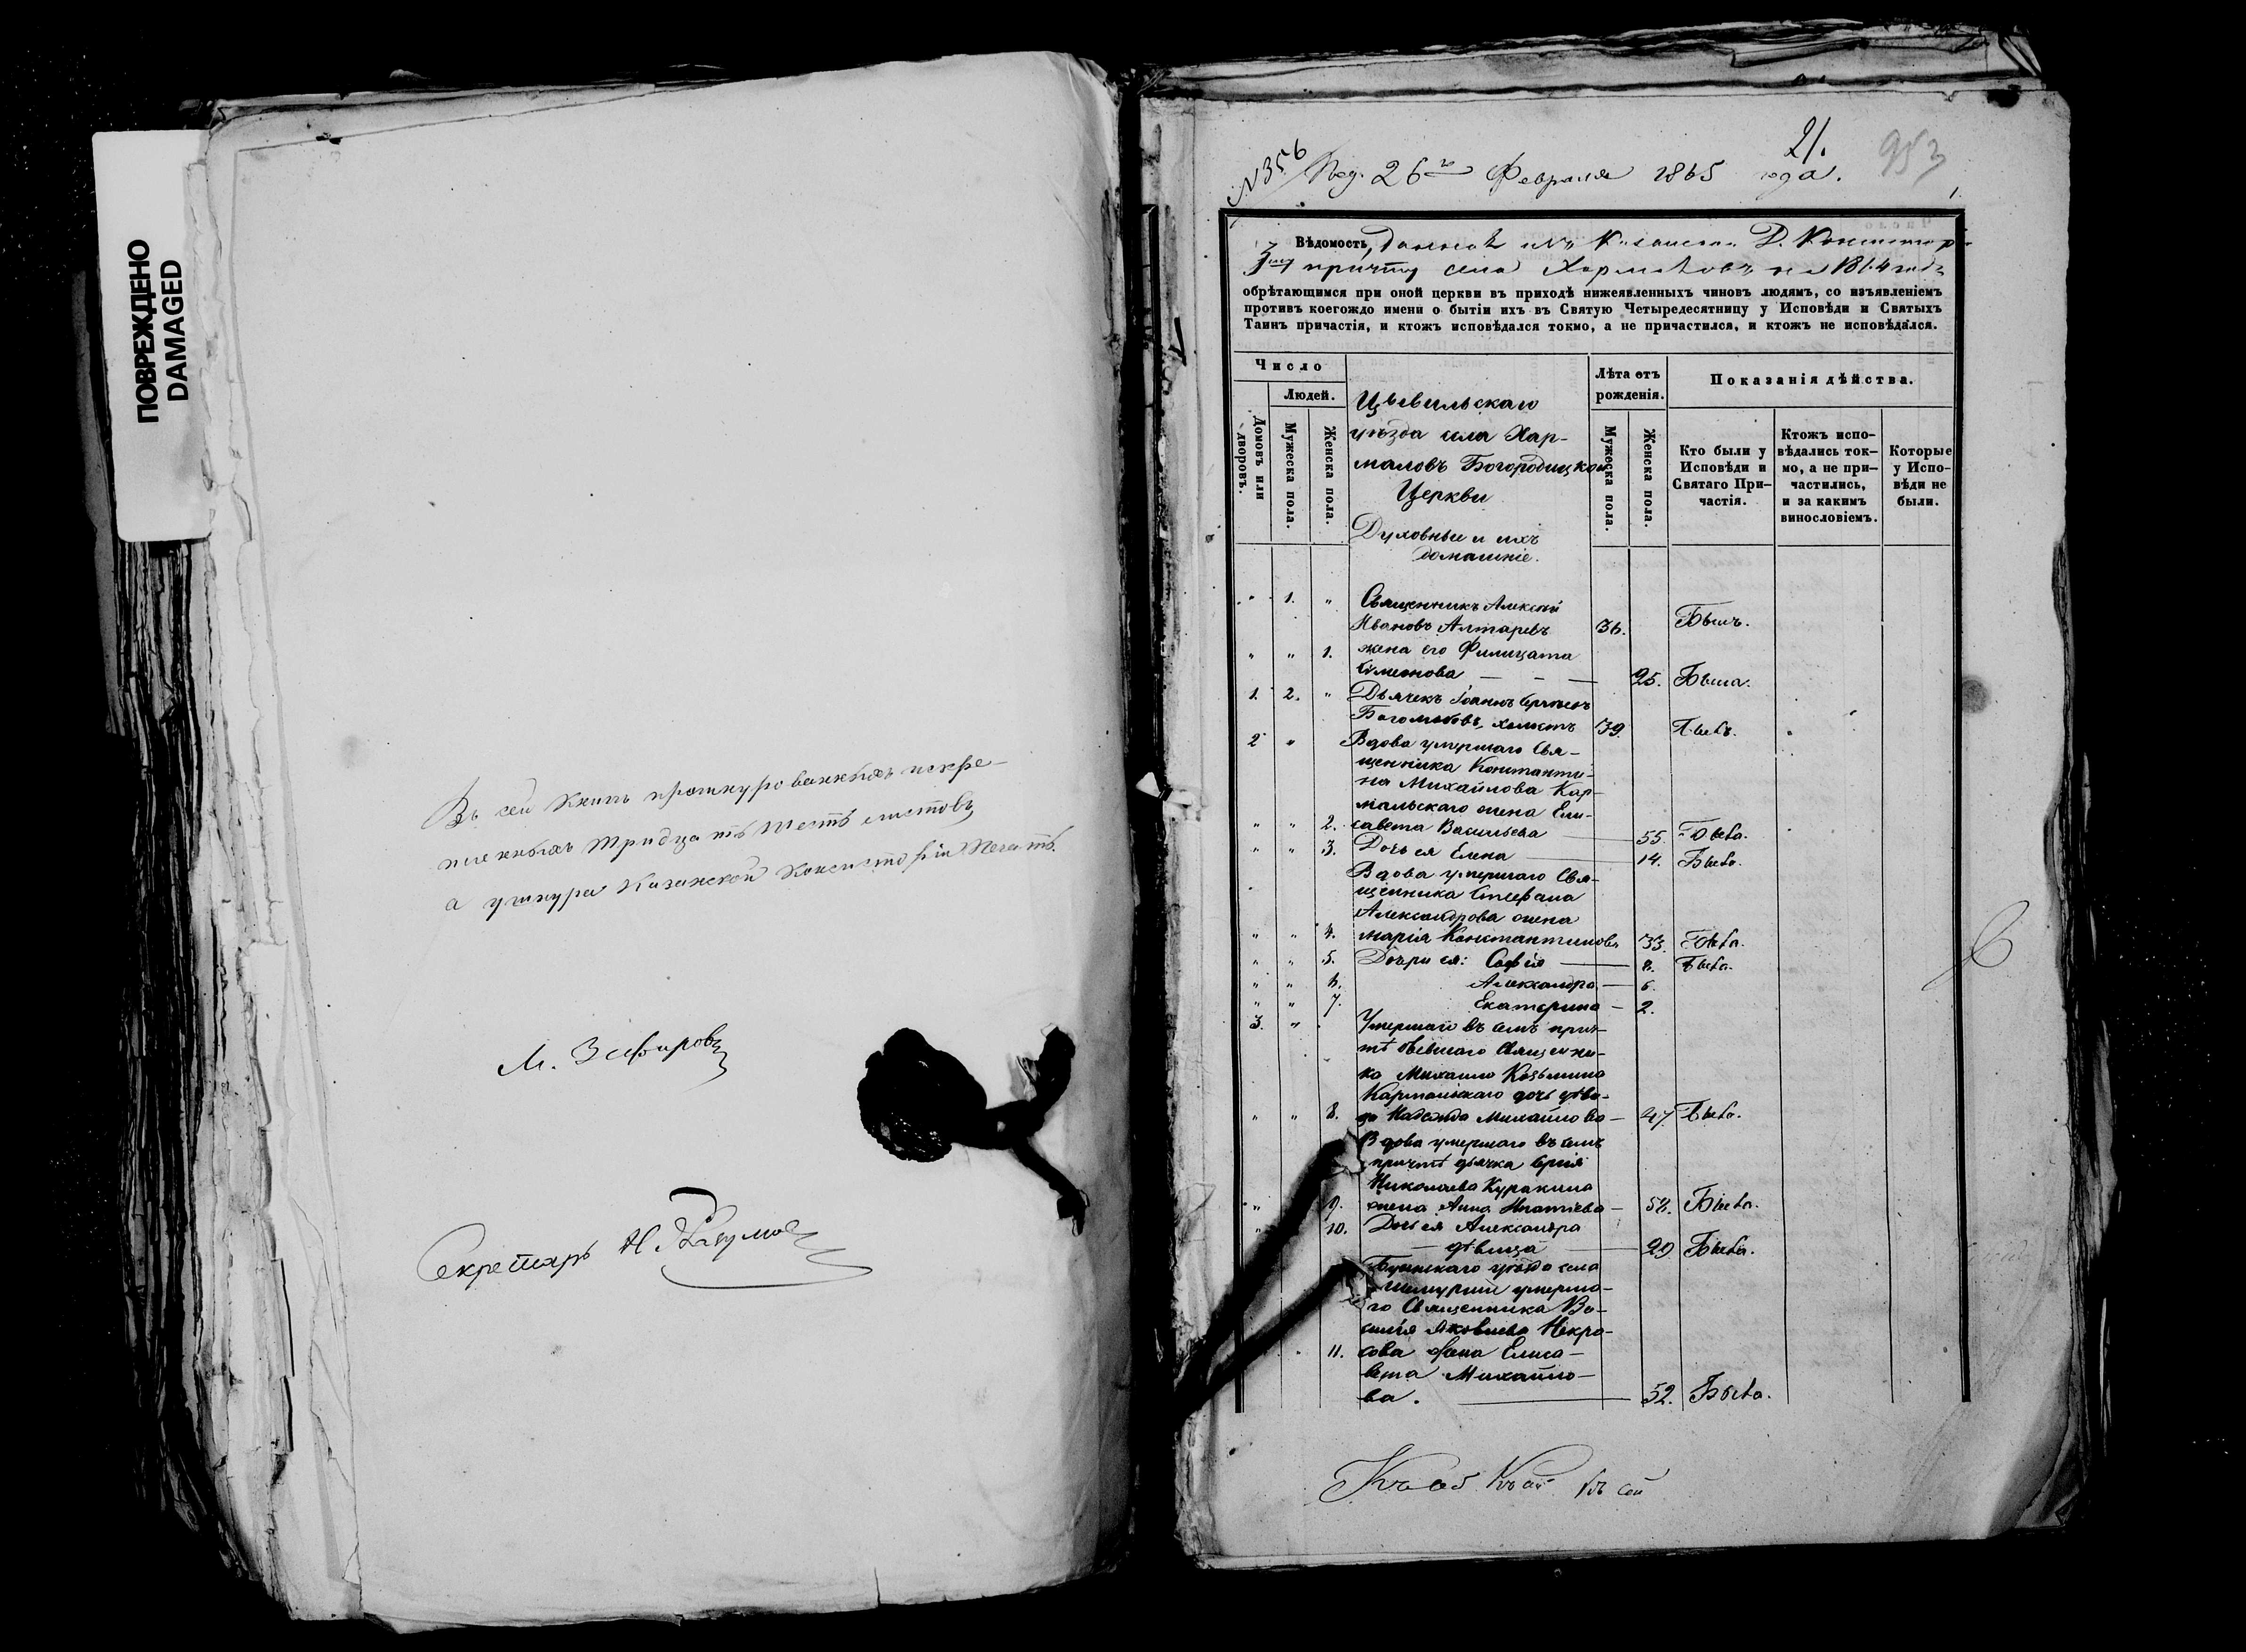 ПОВРЕЖДЕНО
DAMAGED
Въ сей Книгѣ прошнурованныхъ и скре-
пленныхъ тридцать шесть листовъ
а у шнура Казанской Консисторіи Печать.
М. Зефировъ
Секретарь Н. Разумов
21.
953
№356
Под. 26го Февраля 1865 года.
Вѣдомость, данная изъ Казанской Д. Консистор
причту села Хармаловъ на 1864 годъ
обрѣтающимся при оной церкви въ приходѣ нижеявленныхъ чиновъ людямъ, со изъявленіемъ
противъ коегождо имени о бытіи ихъ въ Святую Четыредесятницу у Исповѣди и Святыхъ
Таинъ причастія, и ктожъ исповѣдался токмо, а не причастился, и ктожъ не исповѣдался.
Число
Людей.
Домовъ или дворовъ.
Мужеска пола.
Женска пола.
Цывильскаго
уѣзда села Хар-
маловъ Богородицкой
Церкви
Духовные и ихъ
домашніе.
Лѣта отъ
рожденія.
Мужеска пола.
Женска пола.
Показанія дѣйства.
Кто были у
Исповѣди и
Святаго При-
частія.
Ктожъ испо-
вѣдались ток-
мо, а не при-
частились,
и за какимъ
винословіемъ.
Которые
у Испо-
вѣди не
были.
1. " Священникъ Алексій
Ивановъ Алтаревъ 36. Былъ.
" " 1. жена его Филицата
Симеонова — — — 25. Была.
1. 2. " Дьячекъ Іоаннъ
Богомоловъ, холостъ 39. Былъ.
2 " Вдова умершаго Свя-
щенника Константи-
на Михайлова Кар-
мальскаго жена Ели-
" " 2. савета Васильева — 55. Была.
" " 3. Дочь ея Елена — 14. Была.
Вдова умершаго Свя-
щенника Стефана
Александрова жена
" " 4. Марія Константинова 33. Была.
" " 5. Дочери ея: Софія — 8. Была.
" " 6. Александра — 6.
" " 7. Екатерина — 2.
3. " Умершаго въ семъ прич-
тѣ бывшаго Священни-
ка Михаила Козьмина
Кармальскаго дочь дѣви-
" " 8. ца Надежда Михайлова — 47 Была.
Вдова умершаго въ семъ
причтѣ дьячка
Николаева Куракина
" 9. жена Анна Игнатіева — 58. Была.
10. Дочь ея Александра
— дѣвица — 29 Была.
Буинскаго уѣзда села
Шемурши умерша-
го Священника Ва-
силія Яковлева Некра-
11. сова жена Елиса-
вета Михайло-
ва. — 52. Была.
Къ сей